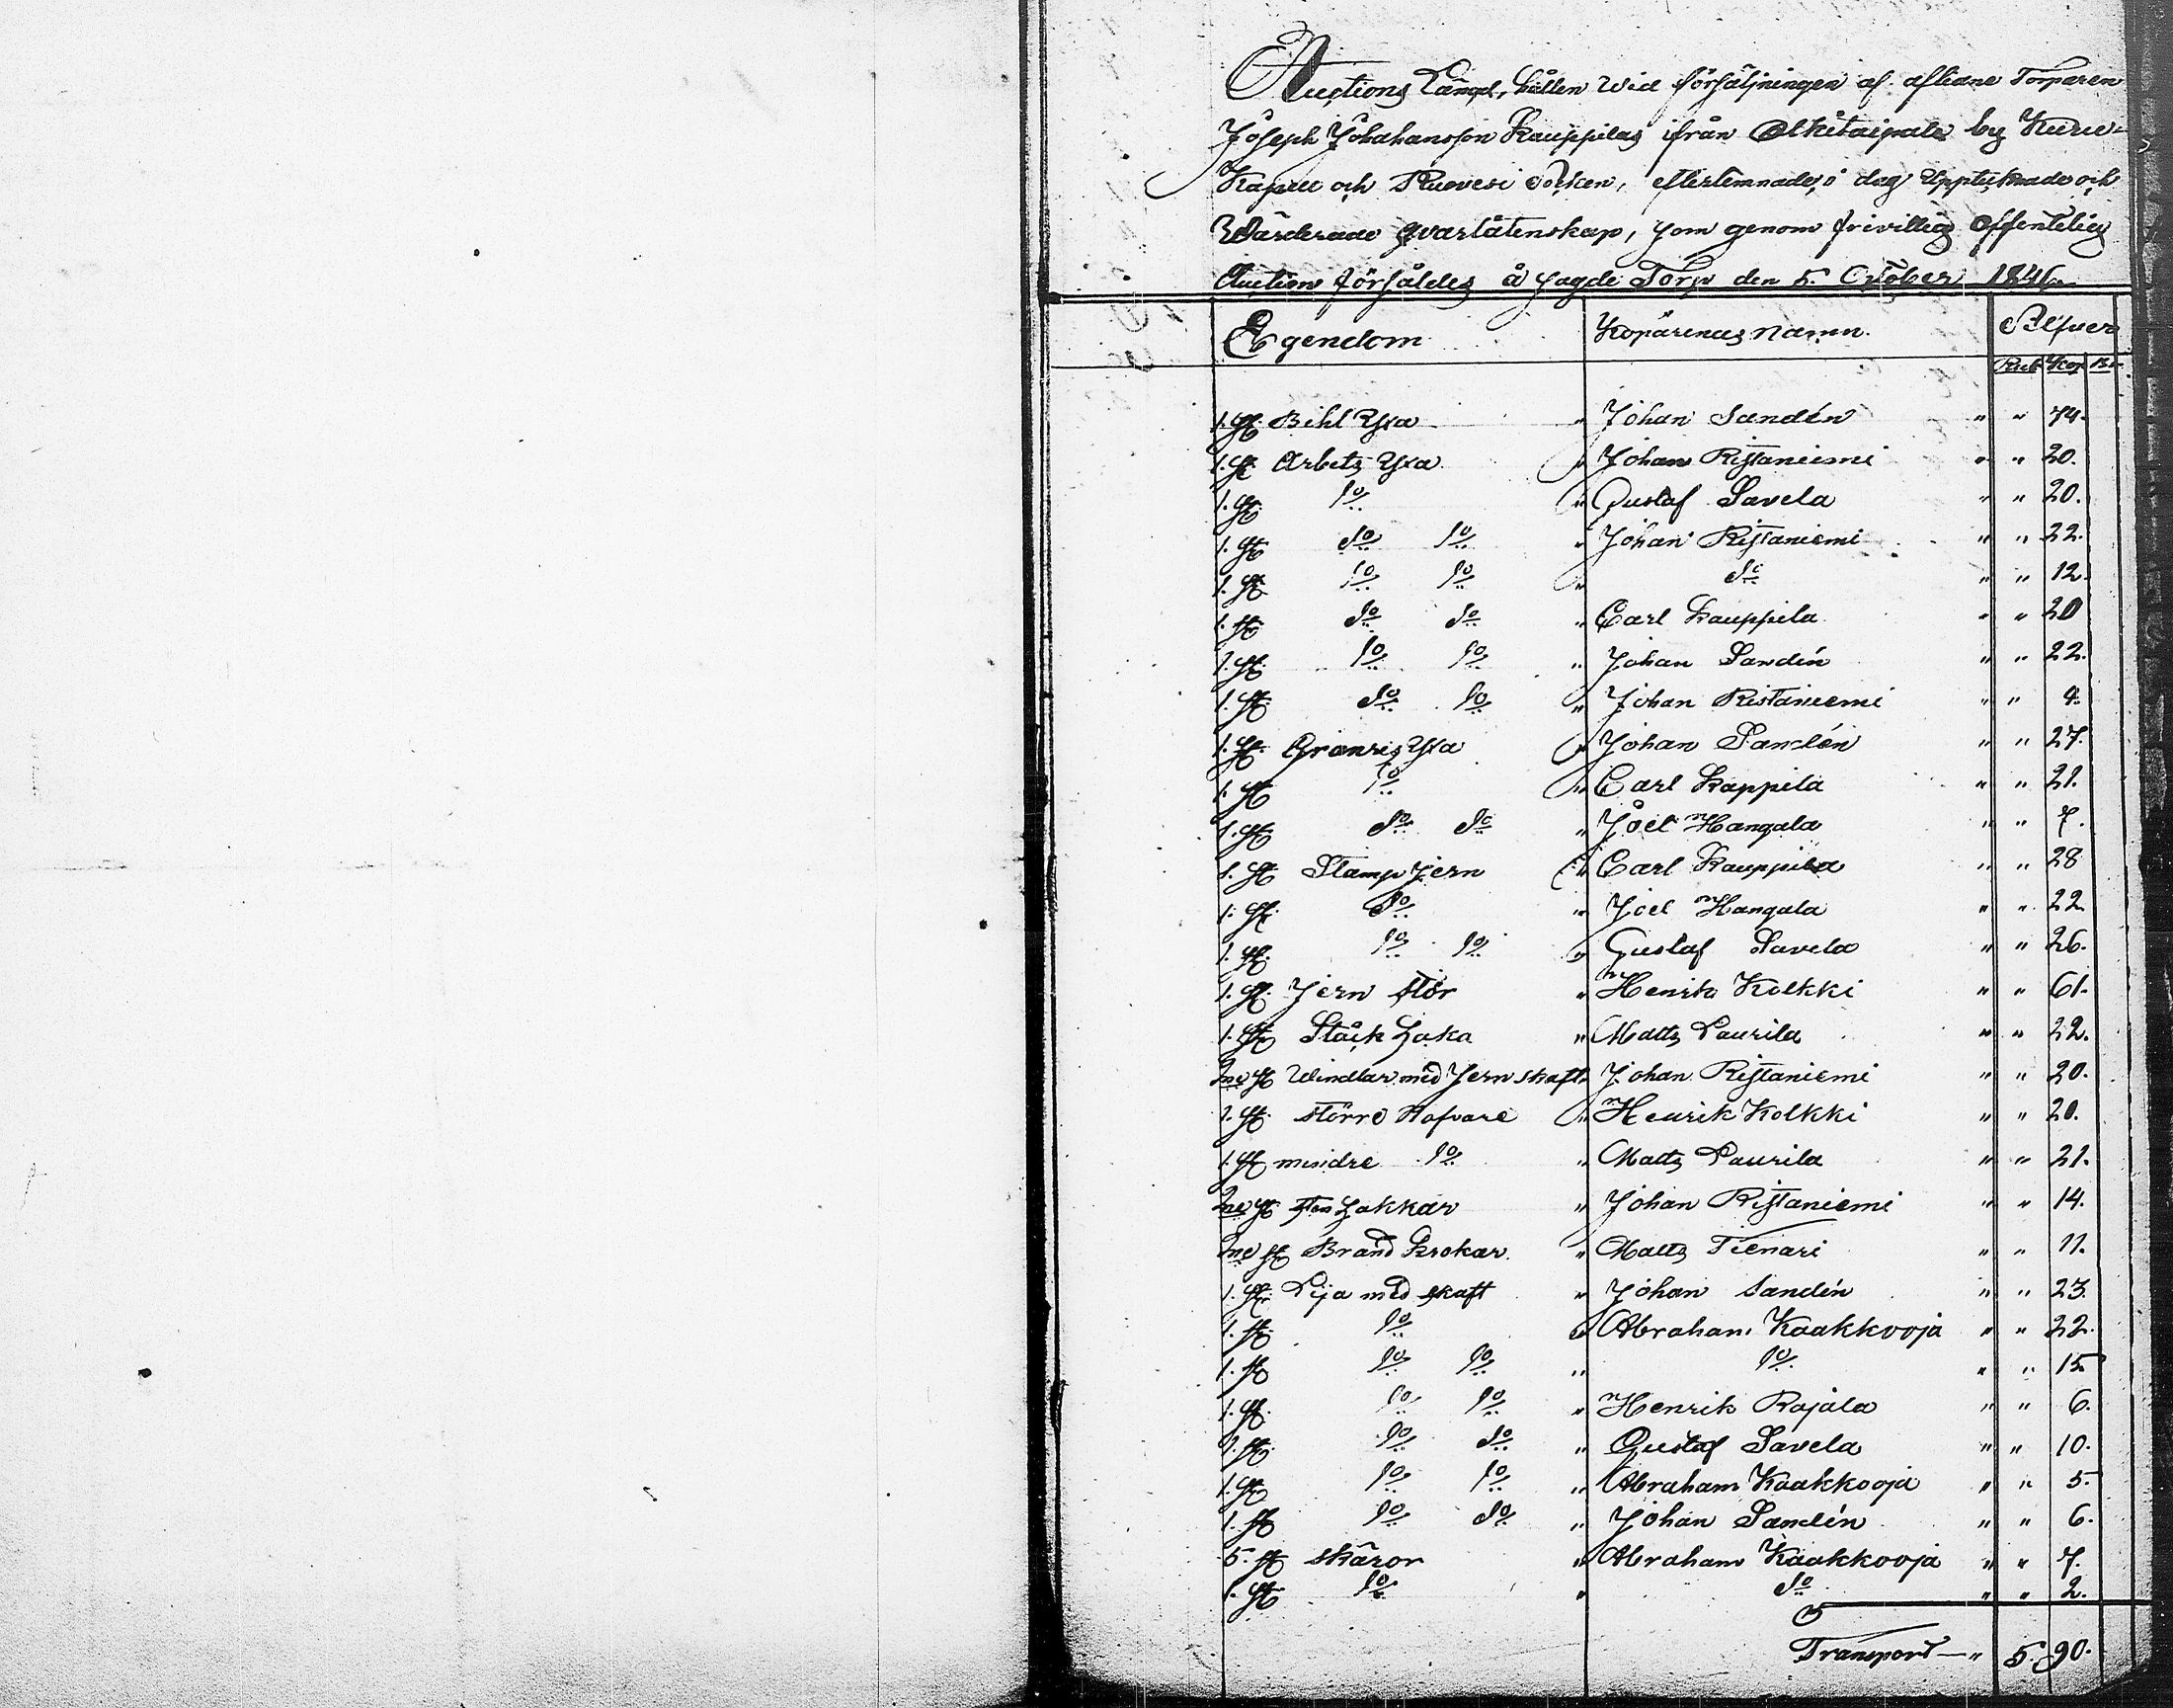 Auctions Längd, hållen wid försäljningen af aflidne Torparen
Joseph Johahansson Kauppilas ifrån Olkitaipale by Kuru
Kapell och Ruovesi Socken, efterlemnade, i dag upptecknade och
Wärderade qvarlåtenskap, som genom frivillig offentelig
Auction försåldes å sagde Torp den 5. October 1846.
Egendom Köparenas Namn. Silfver
Rub Kop
1. st. Bihl Yxa " Johan Sandén " " 74.
1. st. Arbets Yxa " Johan Ristaniemi " " 20.
1. st. do " Gustaf Savela " " 20.
1. st. do do " Johan Ristaniemi " " 22.
1. st. do do " do " " 12.
1. st. do do " Carl Kauppila " " 20
1. st. do do " Johan Sandén " " 22.
1. st. do do " Johan Ristaniemi " " 9.
1. st. Granris Yxa " Johan Sandén " " 27.
1. st. do " Carl Kappila " " 21.
1. st. do do " Joel Hangala " " 7.
1. st. Stamp Jern " Carl Kauppila " " 28
1. st. do " Joel Hangala " " 22
1. st. do do " Gustaf Savela " " 26.
1. st. Jern stör " Henrik Kolkki " " 61.
1. st. Ståck haka " Matts Laurila " " 22.
2ne st Windlar med Jern skaft " Johan Ristaniemi " " 20.
1. st. större Hofvare " Henrik Kolkki " " 20.
1. st mindre do " Matts Laurila " " 21.
2ne st. sten hakkar " Johan Ristaniemi " " 14.
2ne st Brand Krokar " Matts Tienari " " 11.
1. st. Lija med skaft " Johan Sandén " " 23.
1. st. do " Abraham Kaakkooja " " 22.
1. st do do " do " " 15
1. st. do do " Henrik Rajala " " 6.
1. st. do do " Gustaf Savela " " 10.
1. st. do do " Abraham Kaakkooja " " 5.
1. st do do " Johan Sandén " " 6.
5. st skäror " Abraham Kaakkooja " " 7.
1. st do " do " " 2.
Transport — " 5. 90.